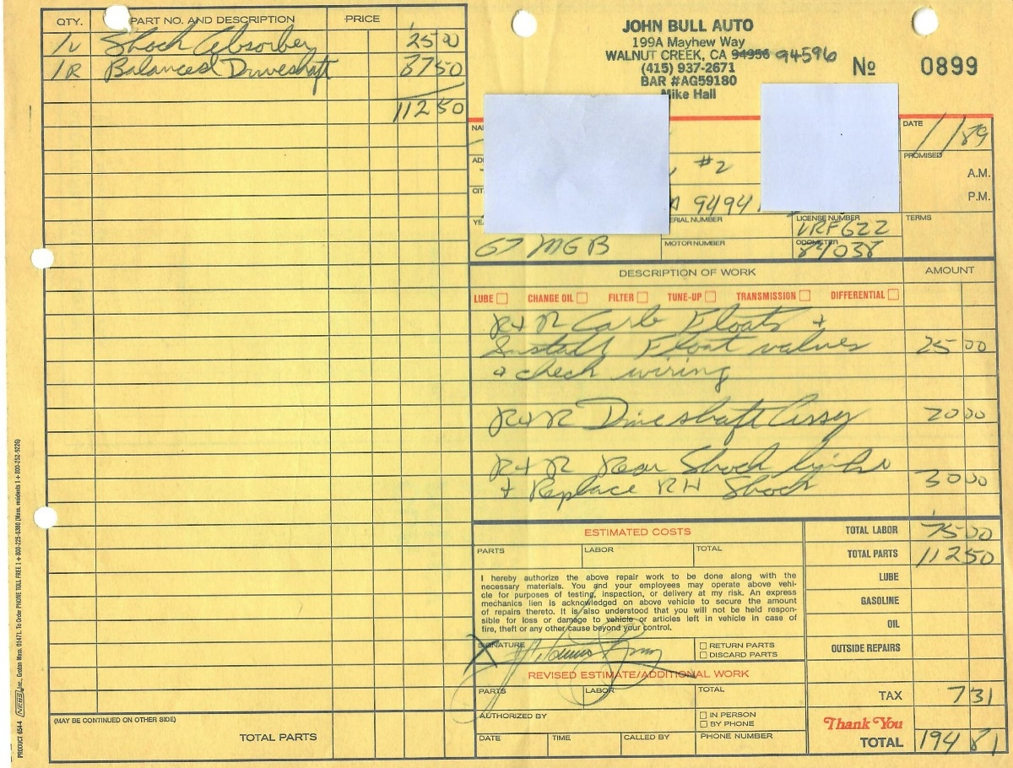 QTY. PART NO. AND DESCRIPTION PRICE
1U Shock Absorber 25 00
1R Balanced Driveshaft 87 50
112 50
(MAY BE CONTINUED ON OTHER SIDE)
TOTAL PARTS
JOHN BULL AUTO
199A Mayhew Way
WALNUT CREEK, CA 94956 94596
(415) 937-2671
BAR #AG59180
Mike Hall
No 0899
DATE 1/89
#2
PROMISED
A.M.
P.M.
A 9494
SERIAL NUMBER
LICENSE NUMBER
TERMS
VRF622
67 MGB
MOTOR NUMBER
ODOMETER
84038
DESCRIPTION OF WORK AMOUNT
LUBE CHANGE OIL FILTER TUNE-UP TRANSMISSION DIFFERENTIAL
R+R Carb Floats +
Install Float valves 25 00
+ check wiring
R+R Driveshaft Assy 20 00
R+R Rear Shock links
+ Replace RH Shock 30 00
ESTIMATED COSTS
PARTS LABOR TOTAL
I hereby authorize the above repair work to be done along with the
necessary materials. You and your employees may operate above vehi-
cle for purposes of testing, inspection, or delivery at my risk. An express
mechanics lien is acknowledged on above vehicle to secure the amount
of repairs thereto. It is also understood that you will not be held respon-
sible for loss or damage to vehicle or articles left in vehicle in case of
fire, theft or any other cause beyond your control.
SIGNATURE
X
RETURN PARTS
DISCARD PARTS
REVISED ESTIMATE/ADDITIONAL WORK
PARTS LABOR TOTAL
AUTHORIZED BY
IN PERSON
BY PHONE
DATE TIME CALLED BY PHONE NUMBER
TOTAL LABOR 75 00
TOTAL PARTS 112 50
LUBE
GASOLINE
OIL
OUTSIDE REPAIRS
TAX 7 31
Thank You
TOTAL 194 81
PRODUCT 654-4 NEBS Inc., Groton Mass. 01471. To Order PHONE TOLL FREE 1+800-225-6380 (Mass. residents 1+800-252-9226)